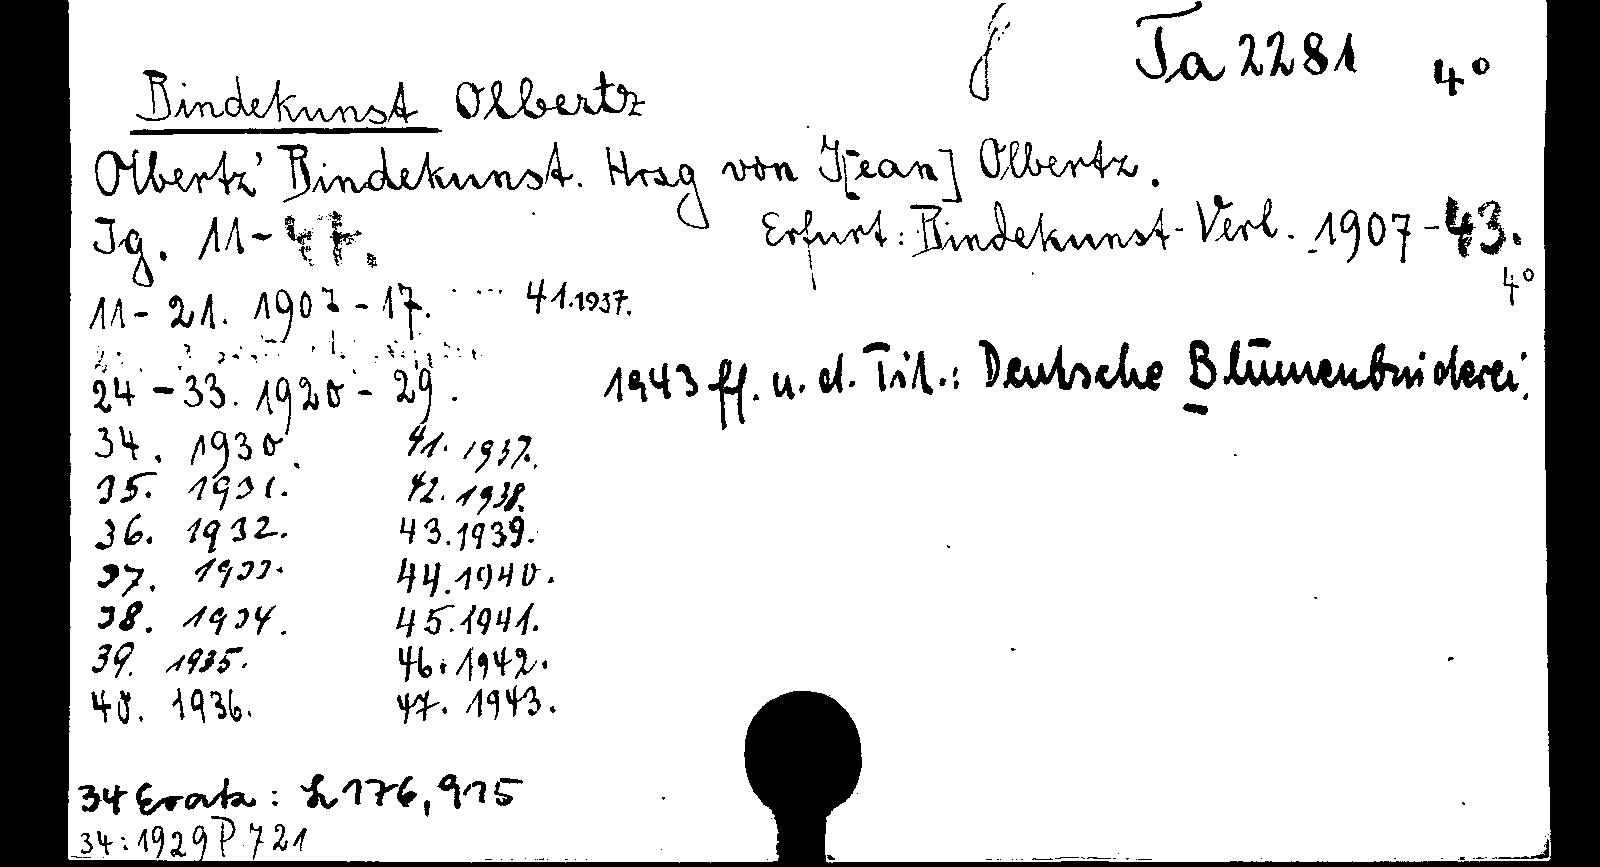 Ta 2281 4°
Bindekunst Olbertz
Olbertz' Bindekunst. Hrsg von J[ean] Olbertz.
Jg. 11-47. Erfurt: Bindekunst-Verl. 1907-43.
4°
11-21. 1907-17. .... 41.1937.
24-33. 1920-29. 1943 ff. u. d. Tit.: Deutsche Blumenbinderei.
34. 1930. 41. 1937.
35. 1931. 42. 1938.
36. 1932. 43. 1939.
37. 1933. 44. 1940.
38. 1934. 45. 1941.
39. 1935. 46. 1942.
40. 1936. 47. 1943.
34 Ersatz: L 176,915
34: 1929 P 721